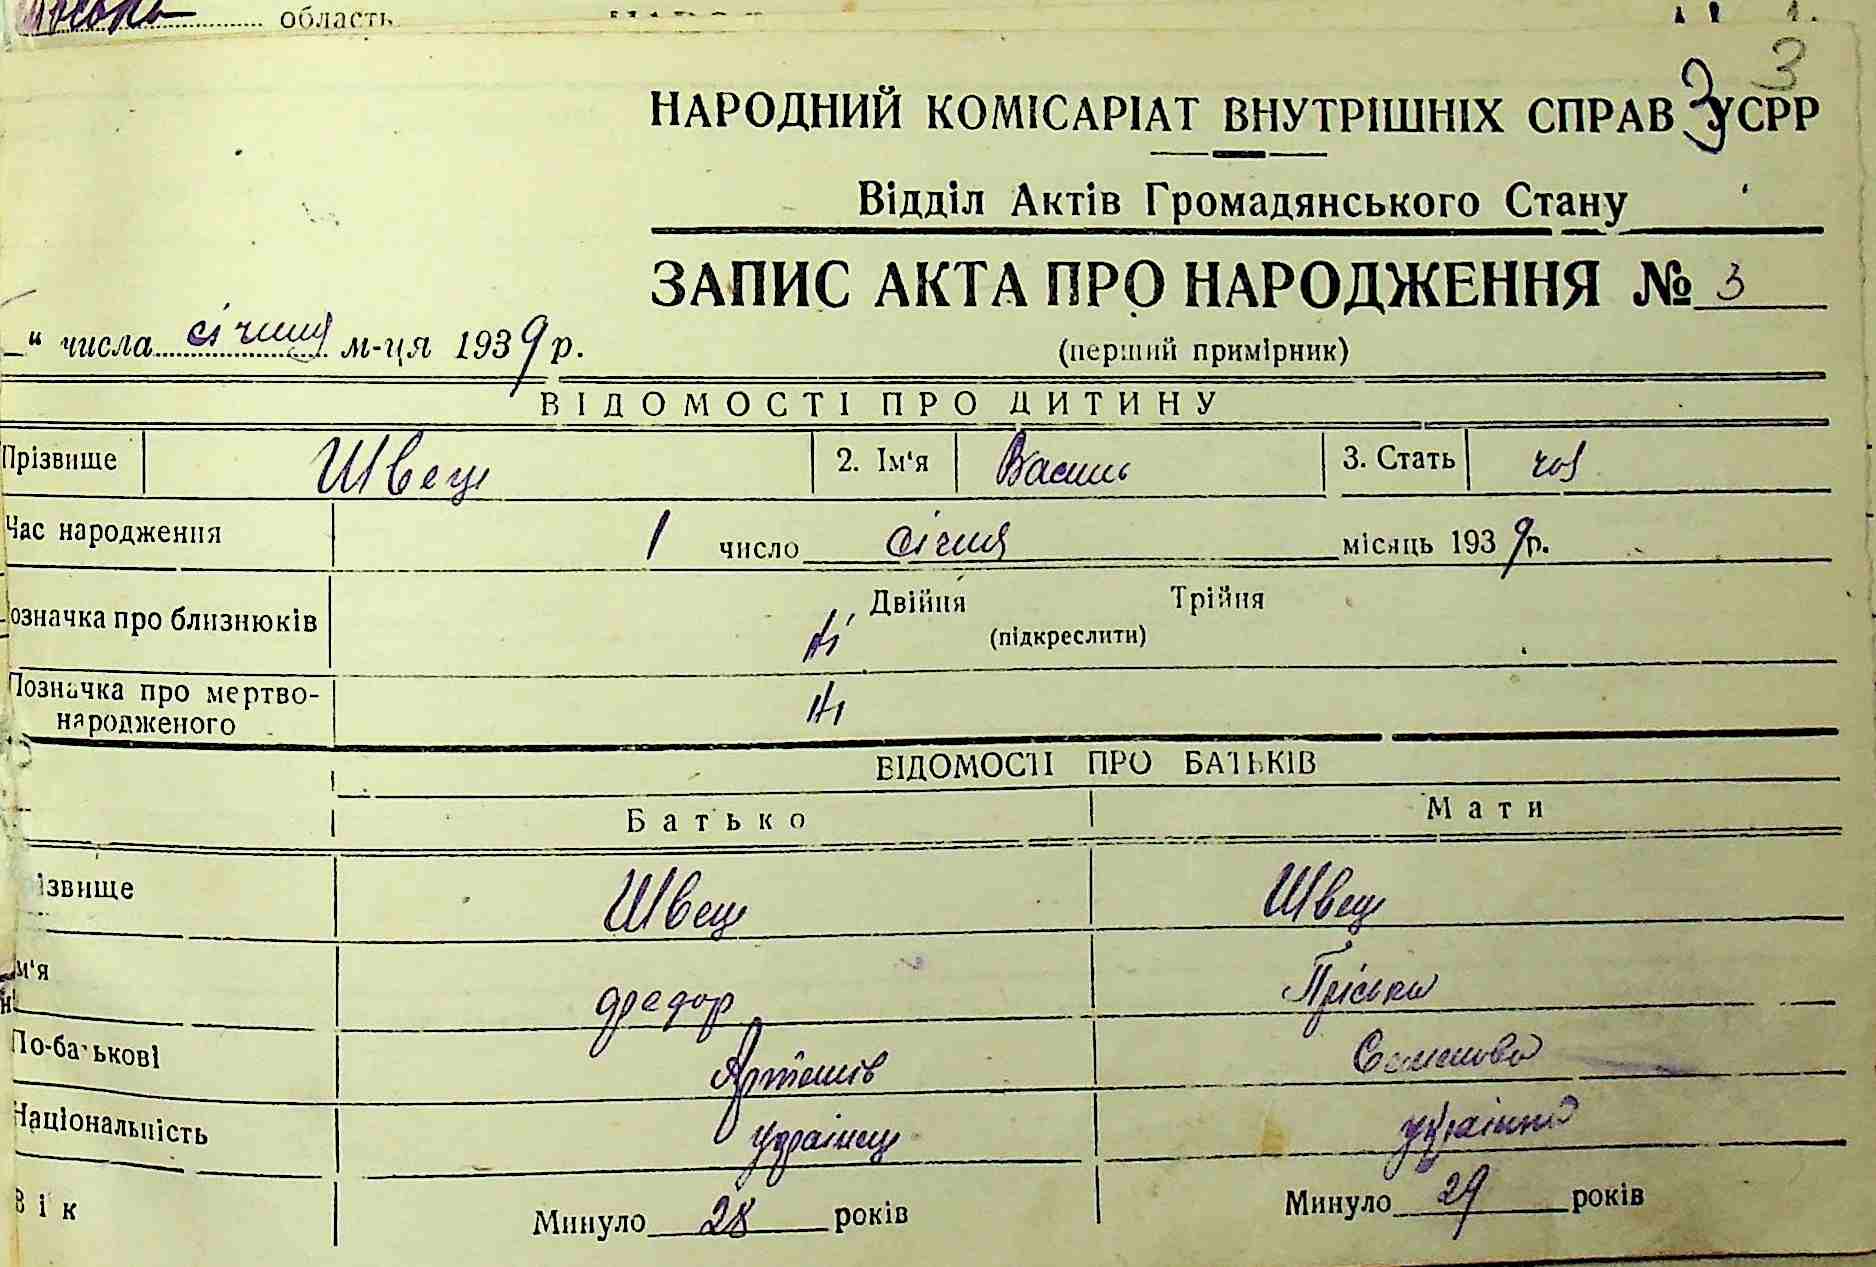 область
3
НАРОДНИЙ КОМІСАРІАТ ВНУТРІШНІХ СПРАВ УСРР
3
Відділ Актів Громадянського Стану
ЗАПИС АКТА ПРО НАРОДЖЕННЯ № 3
“ числа січня м-ця 1939 р.
(перший примірник)
ВІДОМОСТІ ПРО ДИТИНУ
Прізвище Швець 2. Ім'я Василь 3. Стать чол
Час народження 1 число січня місяць 1939 р.
Позначка про близнюків Ні Двійня Трійня
(підкреслити)
Позначка про мертво-
народженого Ні
ВІДОМОСТІ ПРО БАТЬКІВ
Батько Мати
ізвище Швець Швець
м'я Федор Пріська
По-батькові Артемів Семенова
Національність українець українка
Вік Минуло 28 років Минуло 29 років